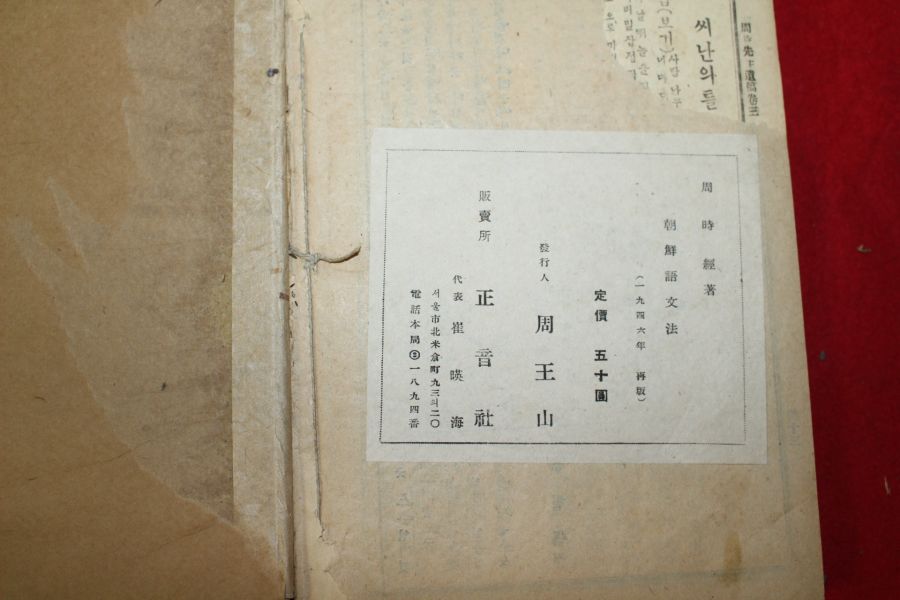 周時經著
朝鮮語文法
(一九四六年 再版)
定價 五十圓
發行人 周王山
販賣所 正音社
代表 崔暎海
서울市北米倉町九三의二〇
電話本局②一八九四番
씨난의틀
(보기)사람 나무